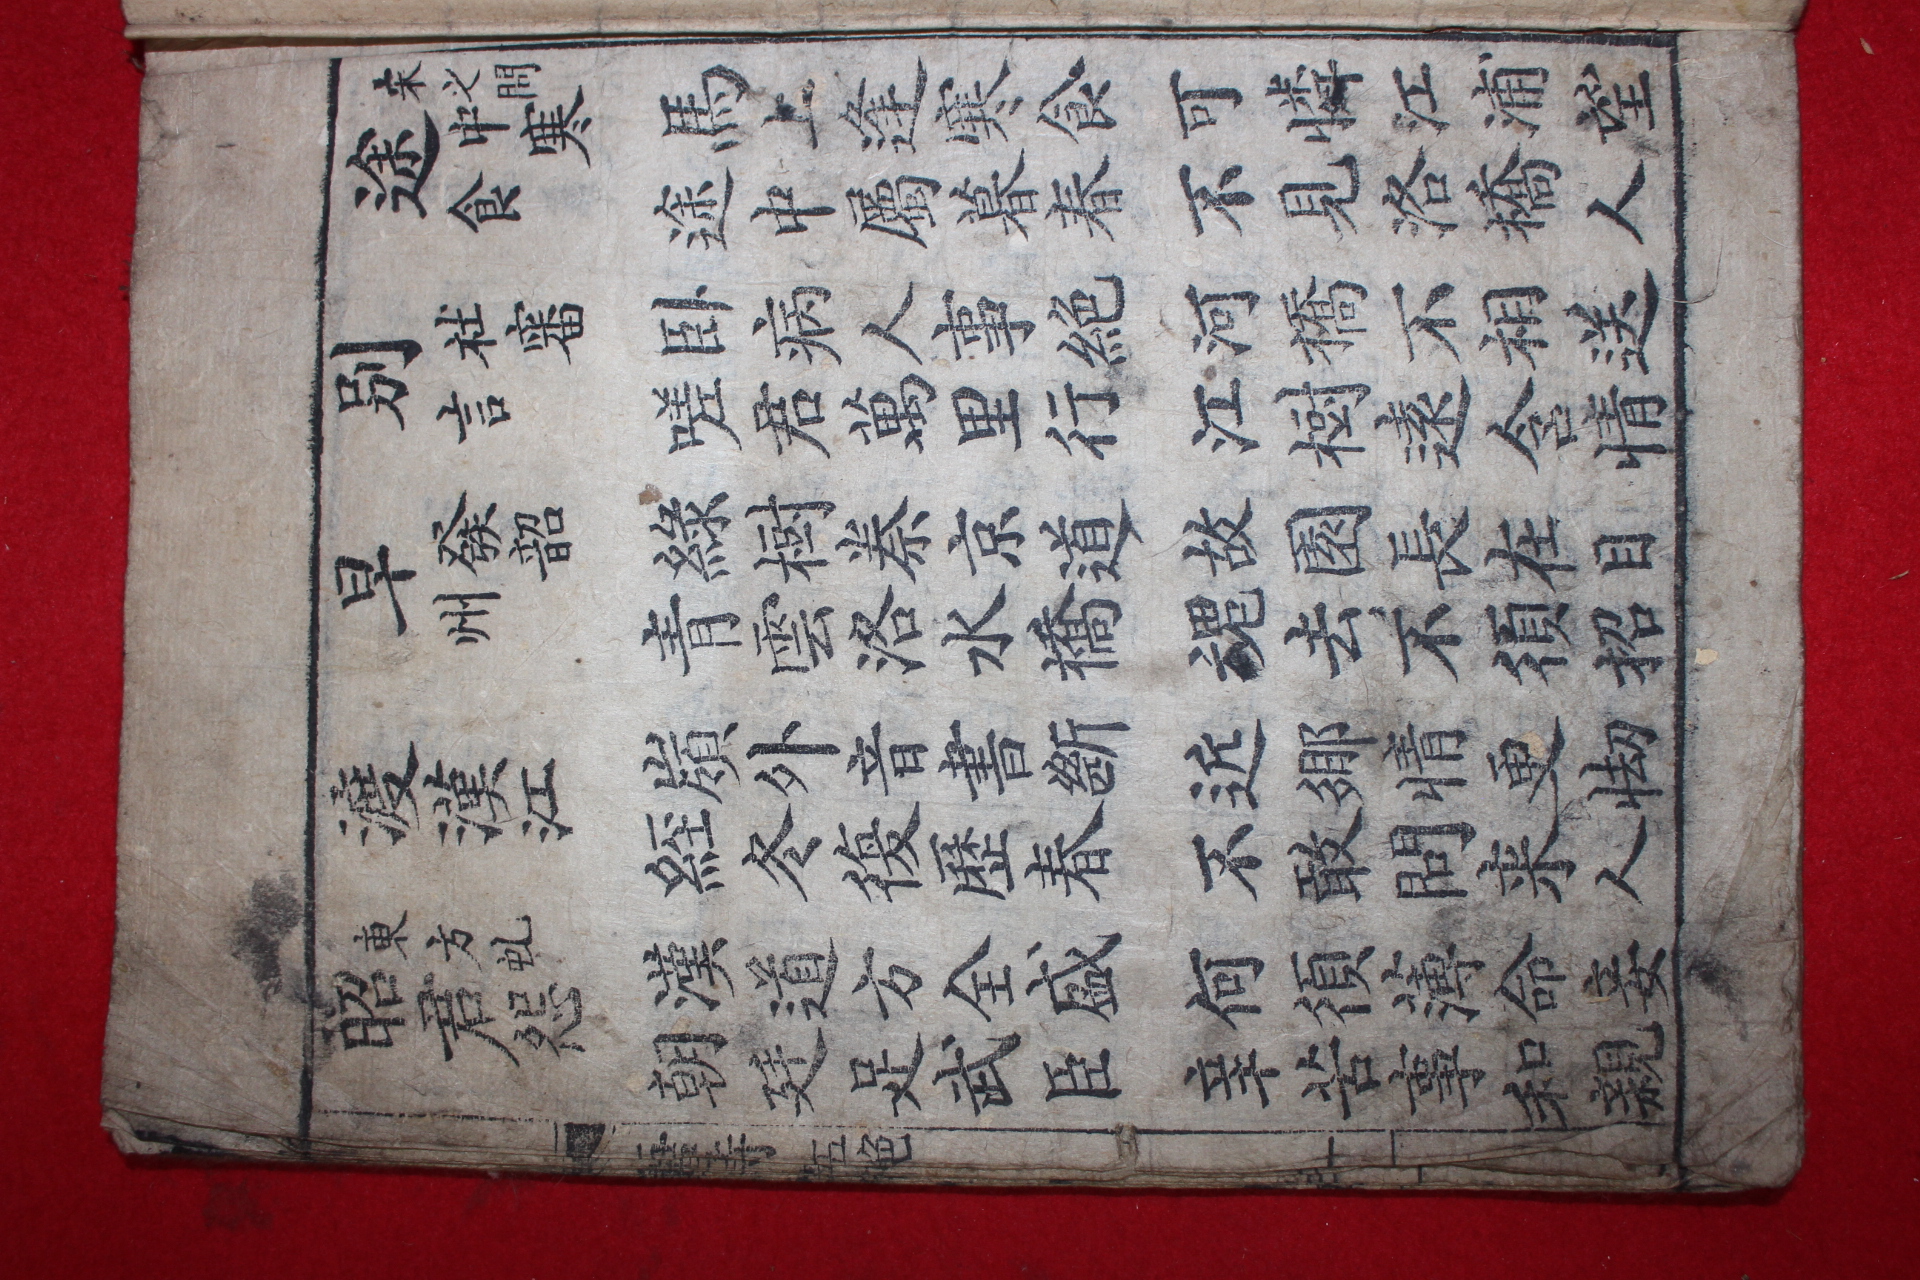 宋之問
途中寒食
馬上逢寒食 可憐江浦望
途中屬暮春 不見洛橋人
別杜審言
卧病人事絶 河橋不相送
嗟君萬里行 江樹遠含情
早發韶州
綠樹秦京道 故園長在目
青雲洛水橋 魂去不須招
渡漢江
嶺外音書斷 近鄉情更怯
經冬復歷春 不敢問来人
東方虬
昭君怨
漢道方全盛 何須薄命妾
朝廷足武臣 辛苦事和親
唐詩 五絶 十